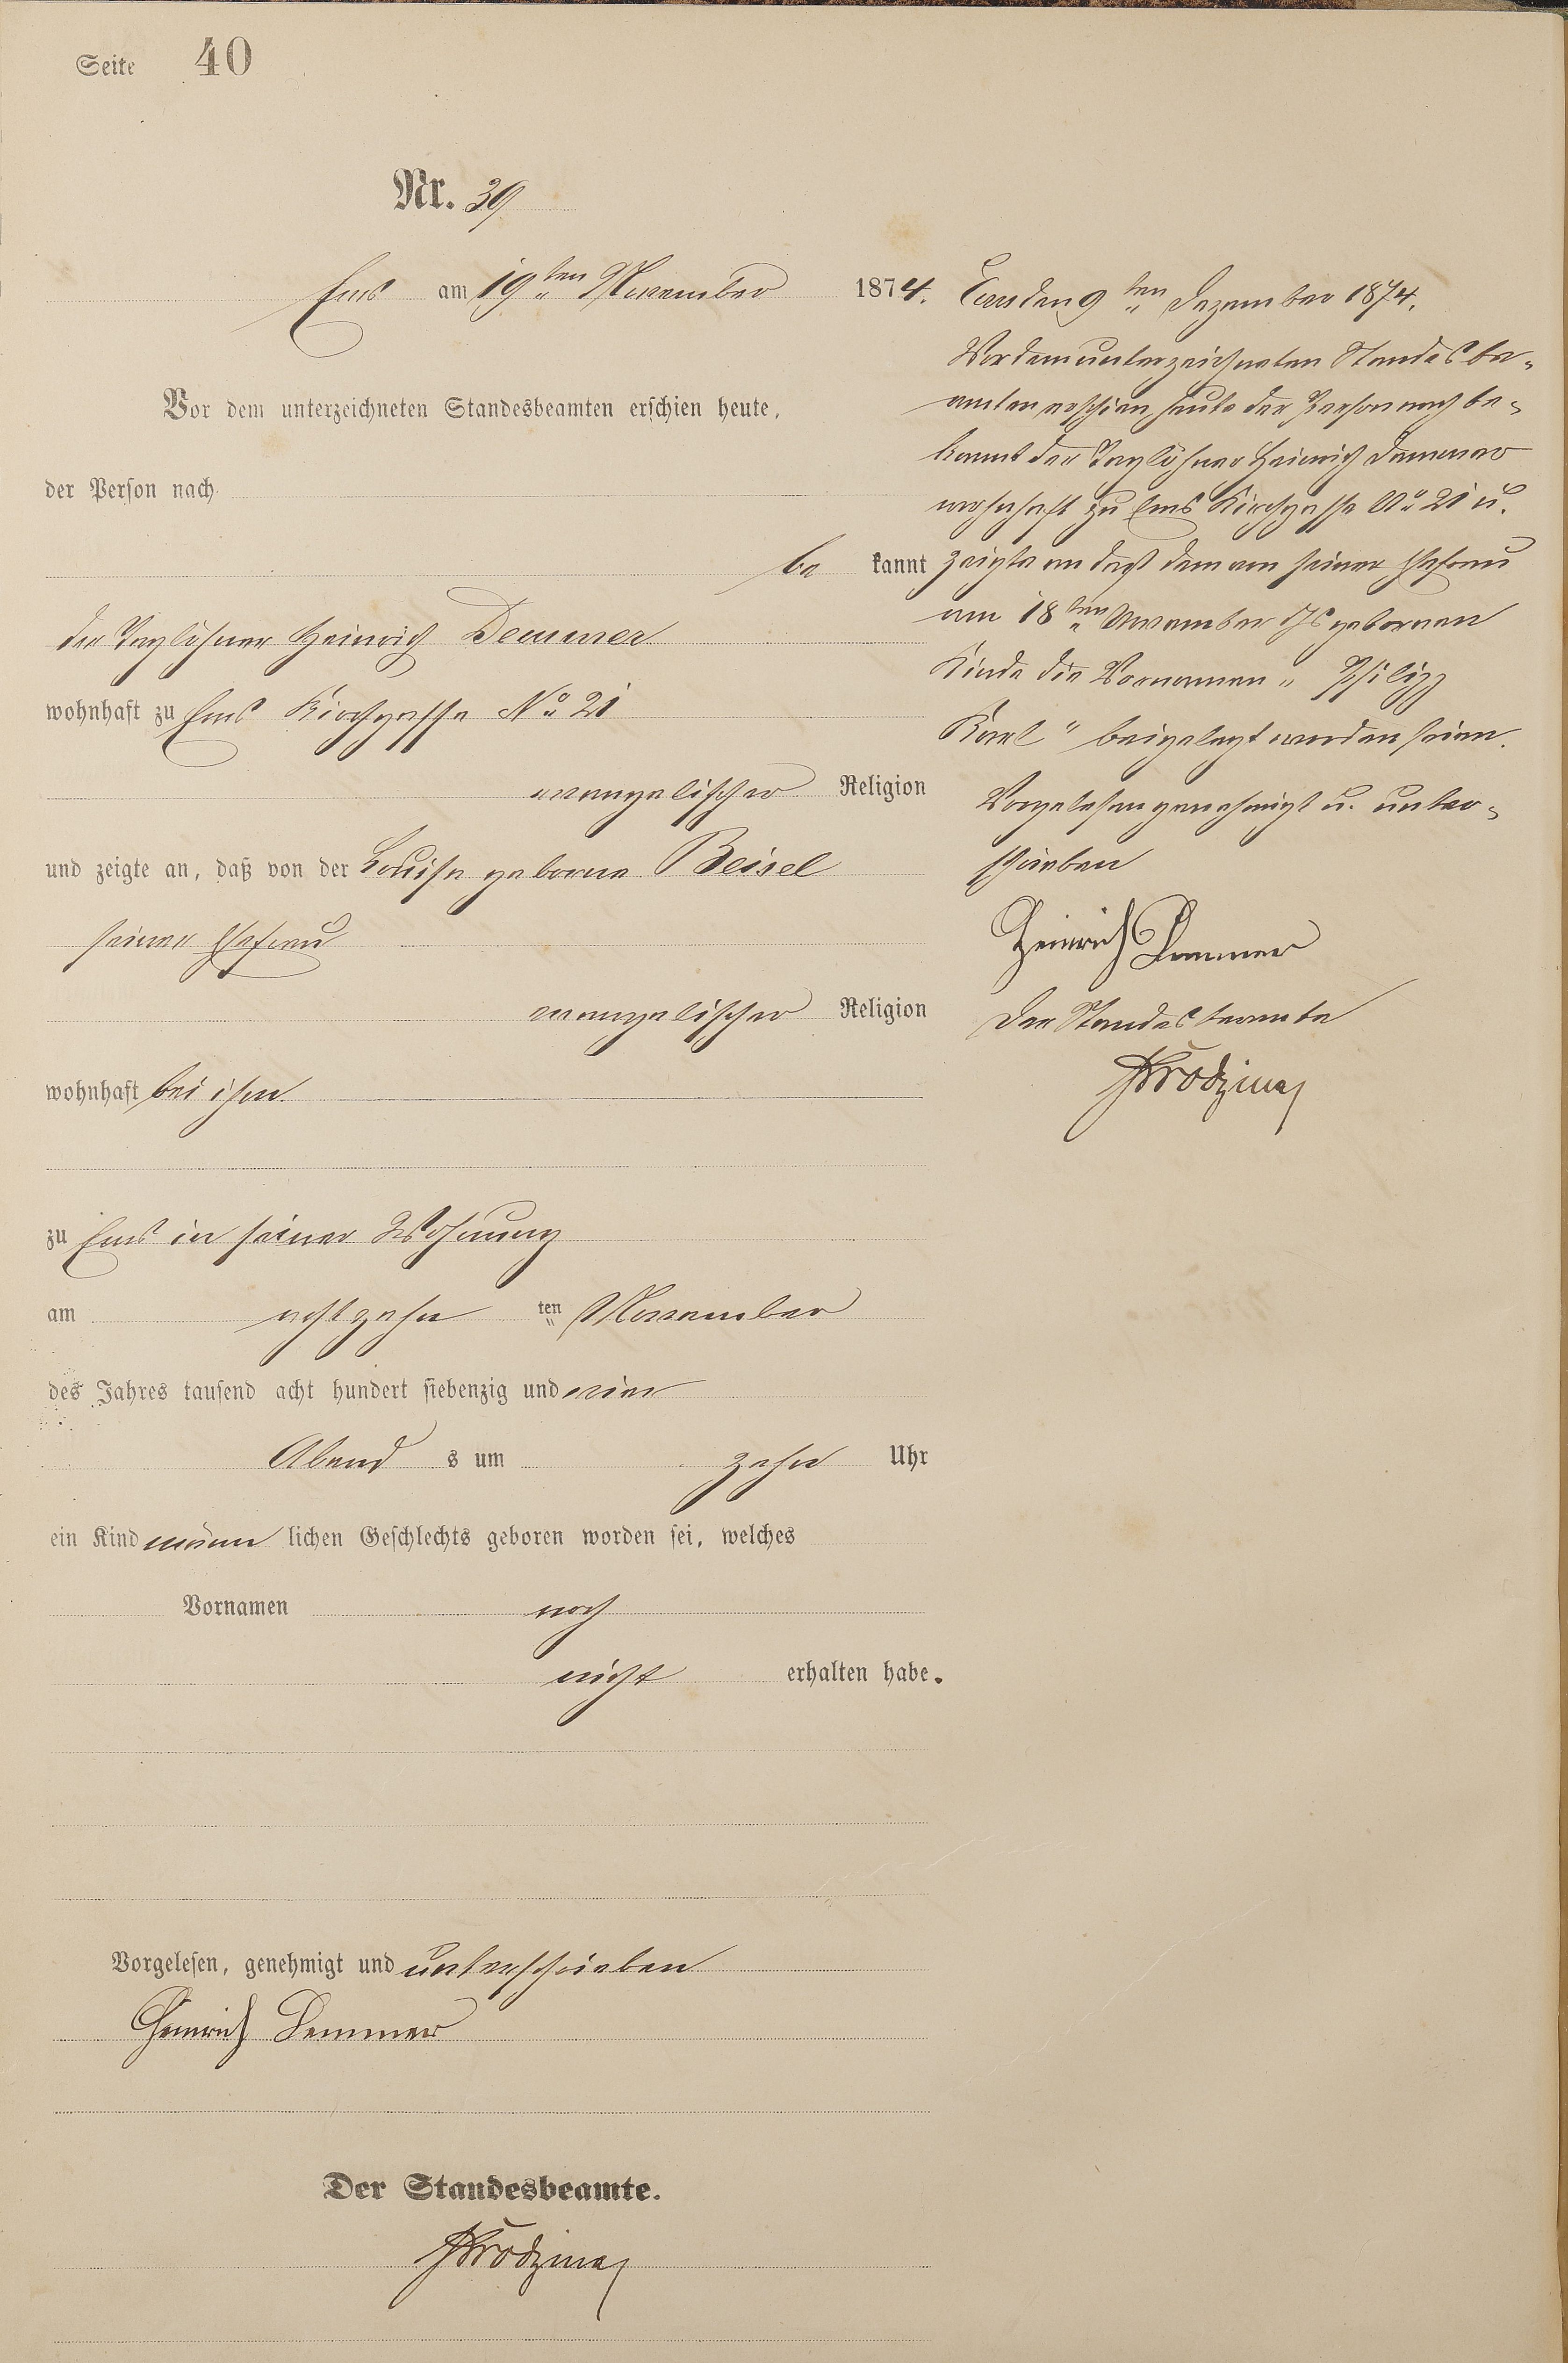 Seite 40
Nr. 39
Ems am 19ten November 1874.
Vor dem unterzeichneten Standesbeamten erschien heute,
der Person nach
be kannt
der Taglöhner Heinrich Demmer
wohnhaft zu Ems Kirchgasse No 21
evangelischer Religion
und zeigte an, daß von der Louise geborne Beisel
seiner Ehefrau
evangelischer Religion
wohnhaft bei ihm
zu Ems in seiner Wohnung
am achtzehn ten November
des Jahres tausend acht hundert siebenzig und vier
Abend s um zehn Uhr
ein Kind männ lichen Geschlechts geboren worden sei, welches
Vornamen noch
nicht erhalten habe.
Vorgelesen, genehmigt und unterschrieben
Heinrich Demmer
Der Standesbeamte.
Ems den 9ten Dezember 1874.
Vor dem unterzeichneten Standesbe-
amten erschien heute der Person nach be-
kannt der Taglöhner Heinrich Demmer
wohnhaft zu Ems Kirchgasse No 21 u.
zeigte an daß dem von seiner Ehefrau
am 18ten November Js gebornen
Kinde die Vornamen „Philipp
Karl" beigelegt worden seien.
Vorgelesen genehmigt u. unter-
schrieben
Heinrich Demmer
Der Standesbeamte